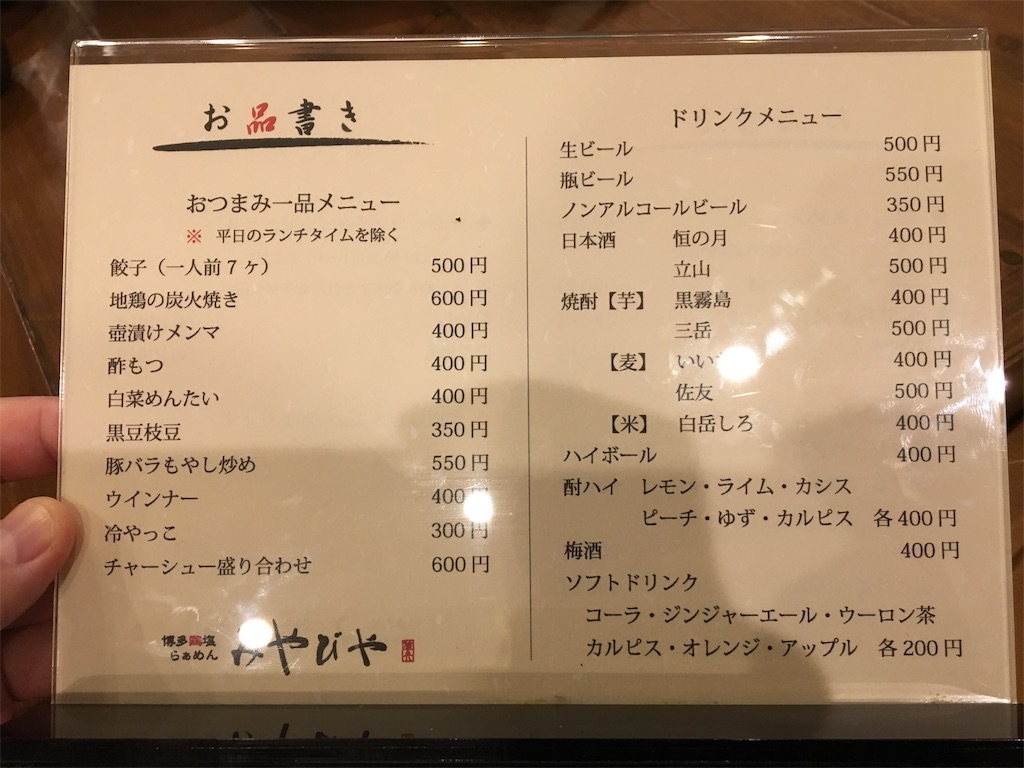 お品書き
おつまみ一品メニュー
※ 平日のランチタイムを除く
餃子（一人前7ヶ） 500円
地鶏の炭火焼き 600円
壺漬けメンマ 400円
酢もつ 400円
白菜めんたい 400円
黒豆枝豆 350円
豚バラもやし炒め 550円
ウインナー 400
冷やっこ 300円
チャーシュー盛り合わせ 600円
博多鶏塩
らぁめん
みやびや
ドリンクメニュー
生ビール 500円
瓶ビール 550円
ノンアルコールビール 350円
日本酒 恒の月 400円
立山 500円
焼酎【芋】 黒霧島 400円
三岳 500円
【麦】 いい 400円
佐友 500円
【米】 白岳しろ 400円
ハイボール 400円
酎ハイ レモン・ライム・カシス
ピーチ・ゆず・カルピス 各400円
梅酒 400円
ソフトドリンク
コーラ・ジンジャーエール・ウーロン茶
カルピス・オレンジ・アップル 各200円